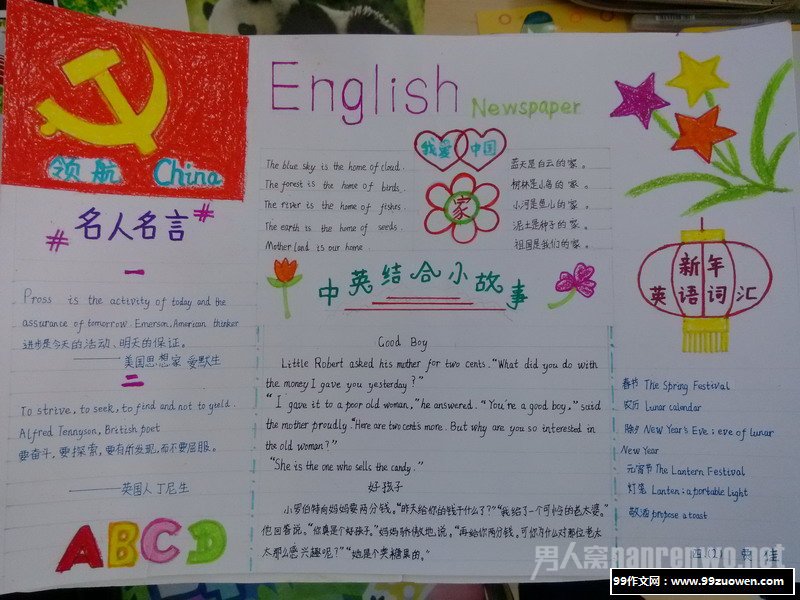 领航 China
# 名人名言 #
一
Pross is the activity of today and the
assurance of tomorrow. Emerson, American thinker
进步是今天的活动、明天的保证。
——美国思想家 爱默生
二
To strive, to seek, to find and not to yield.
Alfred Tennyson, British poet
要奋斗,要探索,要有所发现,而不要屈服。
——英国人丁尼生
ABCD
English Newspaper
我爱 中国
The blue sky is the home of cloud.
The forest is the home of birds.
The river is the home of fishes.
The earth is the home of seeds.
Mother land is our home.
家
蓝天是白云的家。
树林是小鸟的家。
小河是鱼儿的家。
泥土是种子的家。
祖国是我们的家。
中英结合小故事
Good Boy
Little Robert asked his mother for two cents. "What did you do with
the money I gave you yesterday?"
"I gave it to a poor old woman," he answered. "You're a good boy," said
the mother proudly. "Here are two cents more. But why are you so interested in
the old woman?"
"She is the one who sells the candy."
好孩子
小罗伯特向妈妈要两分钱。"昨天给你的钱干什么了?""我给了一个可怜的老太婆。"
他回答说。"你真是个好孩子。"妈妈骄傲地说。"再给你两分钱。可你为什么对那位老太
太那么感兴趣呢?""她是个卖糖果的。"
新年
英语词汇
春节 The Spring Festival
农历 Lunar calendar
除夕 New Year's Eve; eve of lunar
New Year
元宵节 The Lantern Festival
灯笼 Lanten: a portable light
敬酒 propose a toast
四(2) 佳
男人窝nanrenwo.net
99作文网:www.99zuowen.com